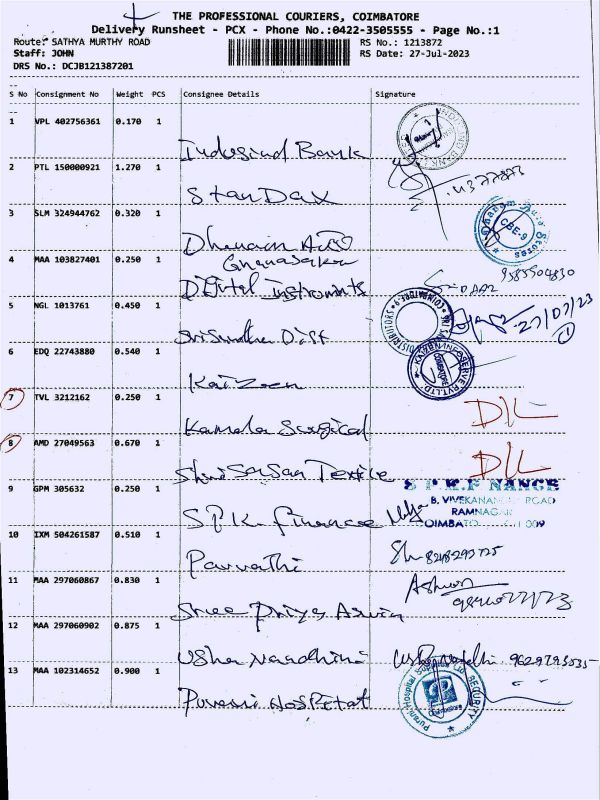 THE PROFESSIONAL COURIERS, COIMBATORE
Delivery Runsheet - PCX - Phone No.:0422-3505555 - Page No.:1
Route: SATHYA MURTHY ROAD RS No.: 1213872
Staff: JOHN RS Date: 27-Jul-2023
DRS No.: DCJB121387201
S No Consignment No Weight PCS Consignee Details Signature
1 VPL 402756361 0.170 1
Indusind Bank
2 PTL 150000921 1.270 1
StanDax
3 SLM 324944762 0.320 1
Dhanam
4 MAA 103827401 0.250 1
Digital instruments
9585504830
5 NGL 1013761 0.450 1
27/07/23
6 EDQ 22743880 0.540 1
Kaizen
7 TVL 3212162 0.250 1
Kamala Surgical D/L
8 AMD 27049563 0.670 1
Shri Sasan Textile D/L
9 GPM 305632 0.250 1
S P K FINANCE
B. VIVEKANAN ROAD
RAMNAGAR
COIMBATO 009
S.P.K. finance
10 IXM 504261587 0.510 1
Parvathi
11 MAA 297060867 0.830 1
Ashwin
Sree Priya Aswin
12 MAA 297060902 0.875 1
Usha Nandhini
13 MAA 102314652 0.900 1
Hospital